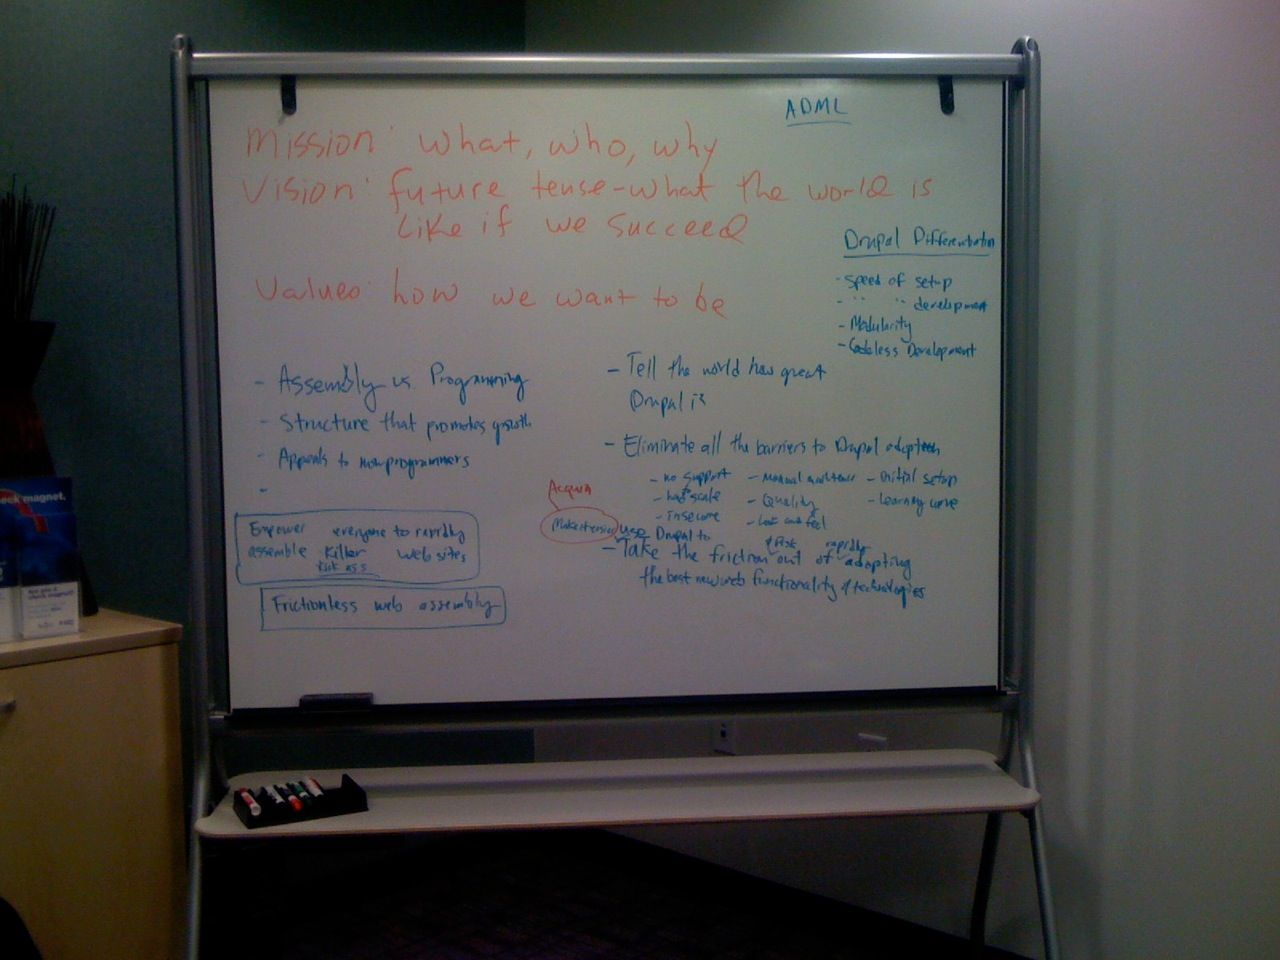 ADML
Mission: what, who, why
Vision: future tense - what the world is
like if we succeed
Values: how we want to be
Drupal Differentiation
- Speed of setup
- " " development
- Modularity
- Codeless Development
- Assembly vs Programming
- Structure that promotes growth
- Appeals to nonprogrammers
-
Empower everyone to rapidly
assemble killer web sites
kick ass
Frictionless web assembly
- Tell the world how great
Drupal is
- Eliminate all the barriers to Drupal adoption
- no support - Manual maintenance - initial setup
- scale - Quality - learning curve
- insecure - Look and feel
Acquia
use Drupal to
& risk rapidly
- Take the friction out of adopting
the best new web functionality & technologies
eek magnet.